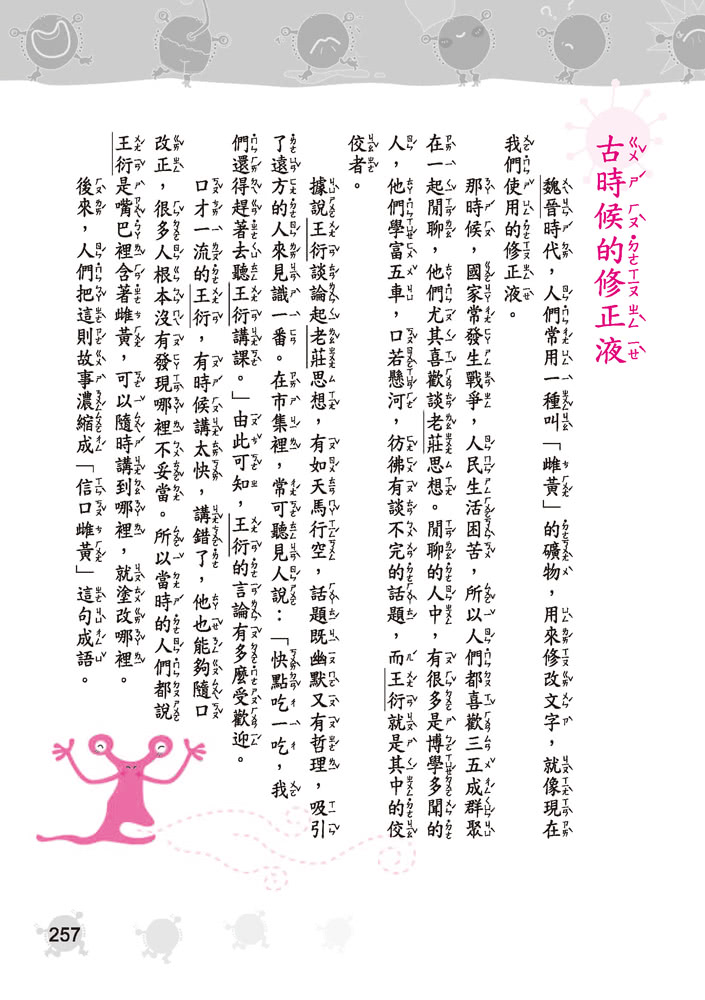 古時候的修正液
魏晉時代，人們常用一種叫「雌黃」的礦物，用來修改文字，就像現在
我們使用的修正液。
那時候，國家常發生戰爭，人民生活困苦，所以人們都喜歡三五成群聚
在一起閒聊，他們尤其喜歡談老莊思想。閒聊的人中，有很多是博學多聞的
人，他們學富五車，口若懸河，彷彿有談不完的話題，而王衍就是其中的佼
佼者。
據說王衍談論起老莊思想，有如天馬行空，話題既幽默又有哲理，吸引
了遠方的人來見識一番。在市集裡，常可聽見人說：「快點吃一吃，我
們還得趕著去聽王衍講課。」由此可知，王衍的言論有多麼受歡迎。
口才一流的王衍，有時候講太快，講錯了，他也能夠隨口
改正，很多人根本沒有發現哪裡不妥當。所以當時的人們都說
王衍是嘴巴裡含著雌黃，可以隨時講到哪裡，就塗改哪裡。
後來，人們把這則故事濃縮成「信口雌黃」這句成語。
257